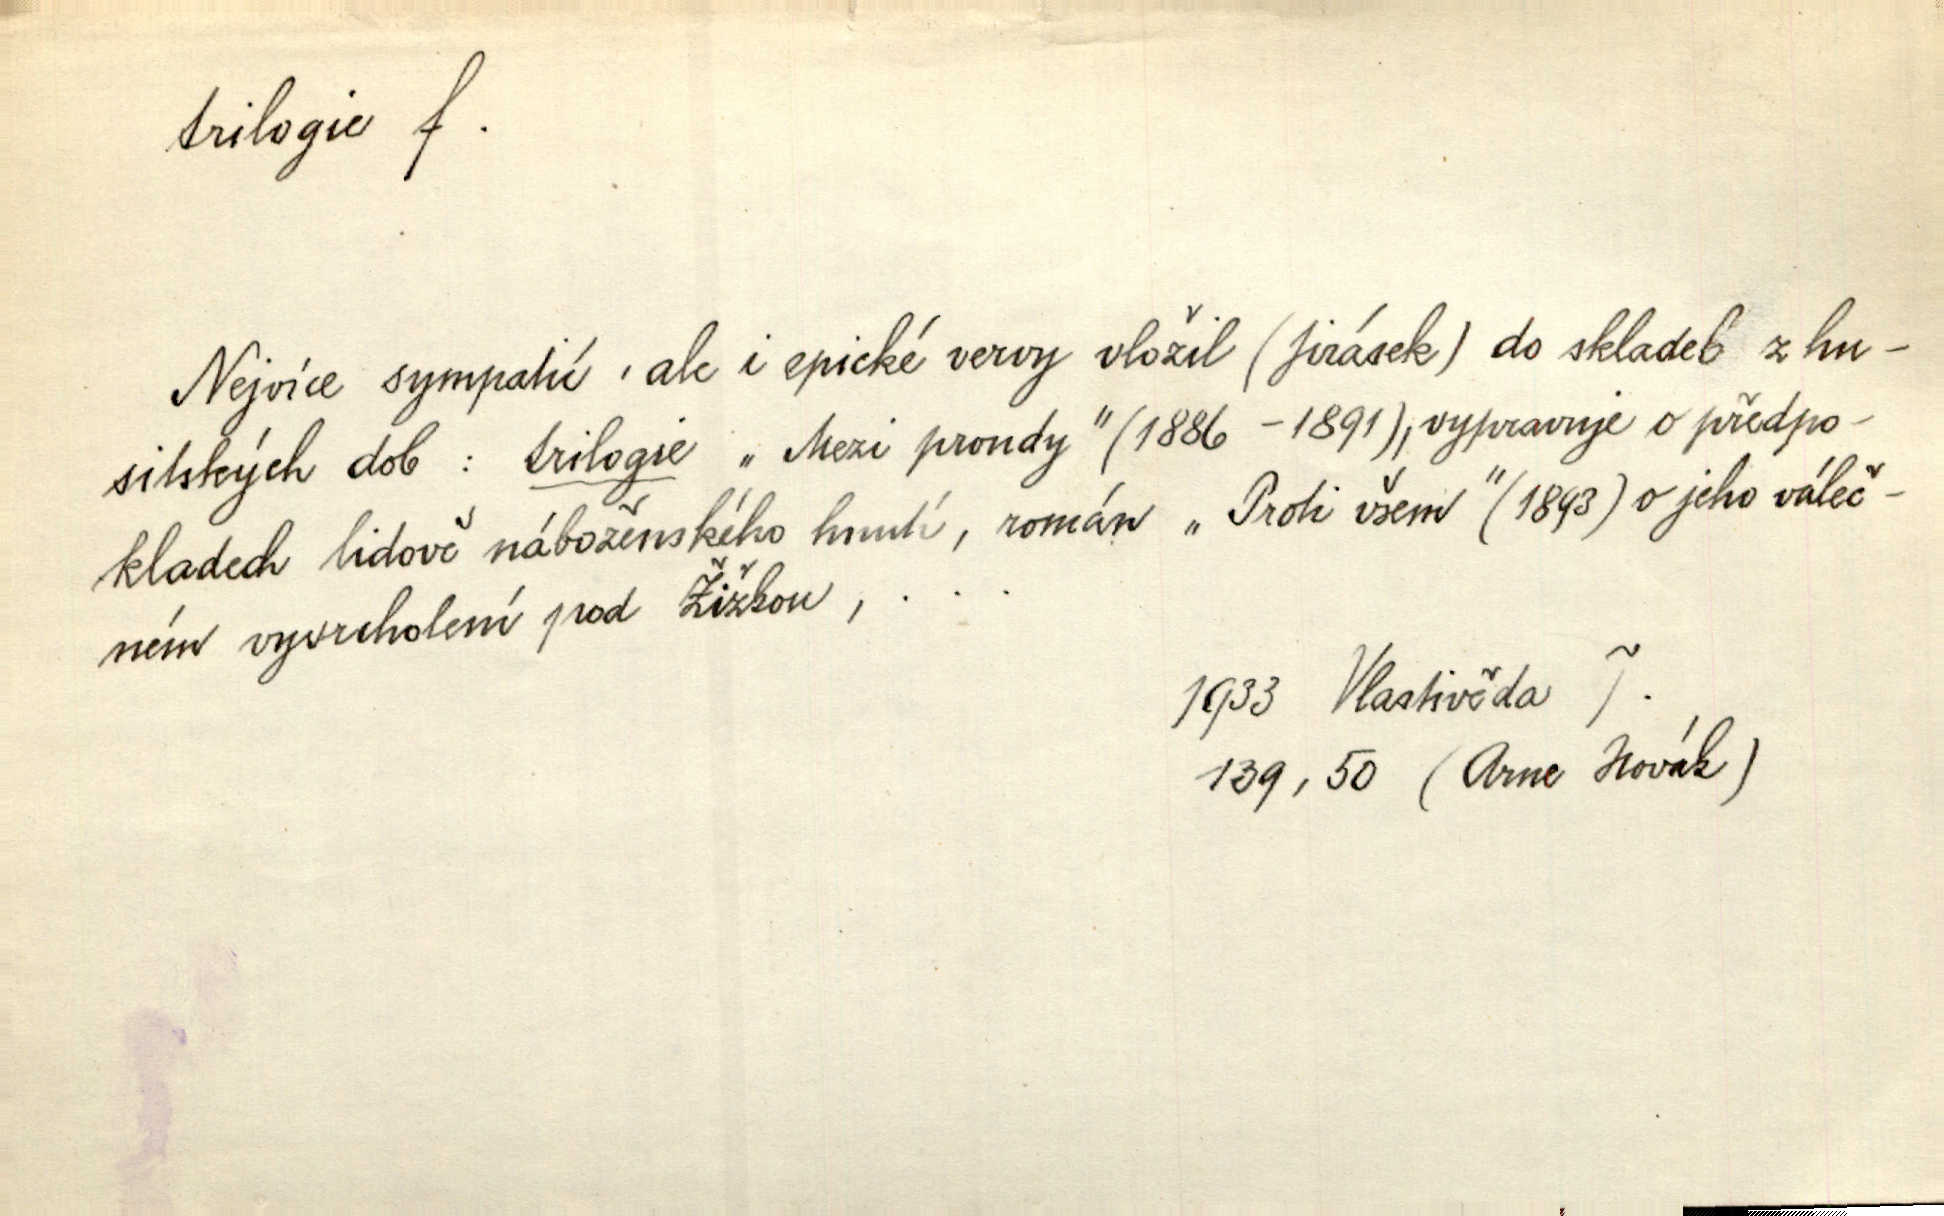 trilogie f.
Nejvíce sympatií, ale i epické vervy vložil (Jirásek) do skladeb z hu-
sitských dob : trilogie „Mezi proudy" (1886 - 1891), vypravuje o předpo-
kladech lidově náboženského hnutí, román „Proti všem" (1893) o jeho váleč-
ném vyvrcholení pod Žižkou, . . .
1933 Vlastivěda
139, 50 (Arne Novák)